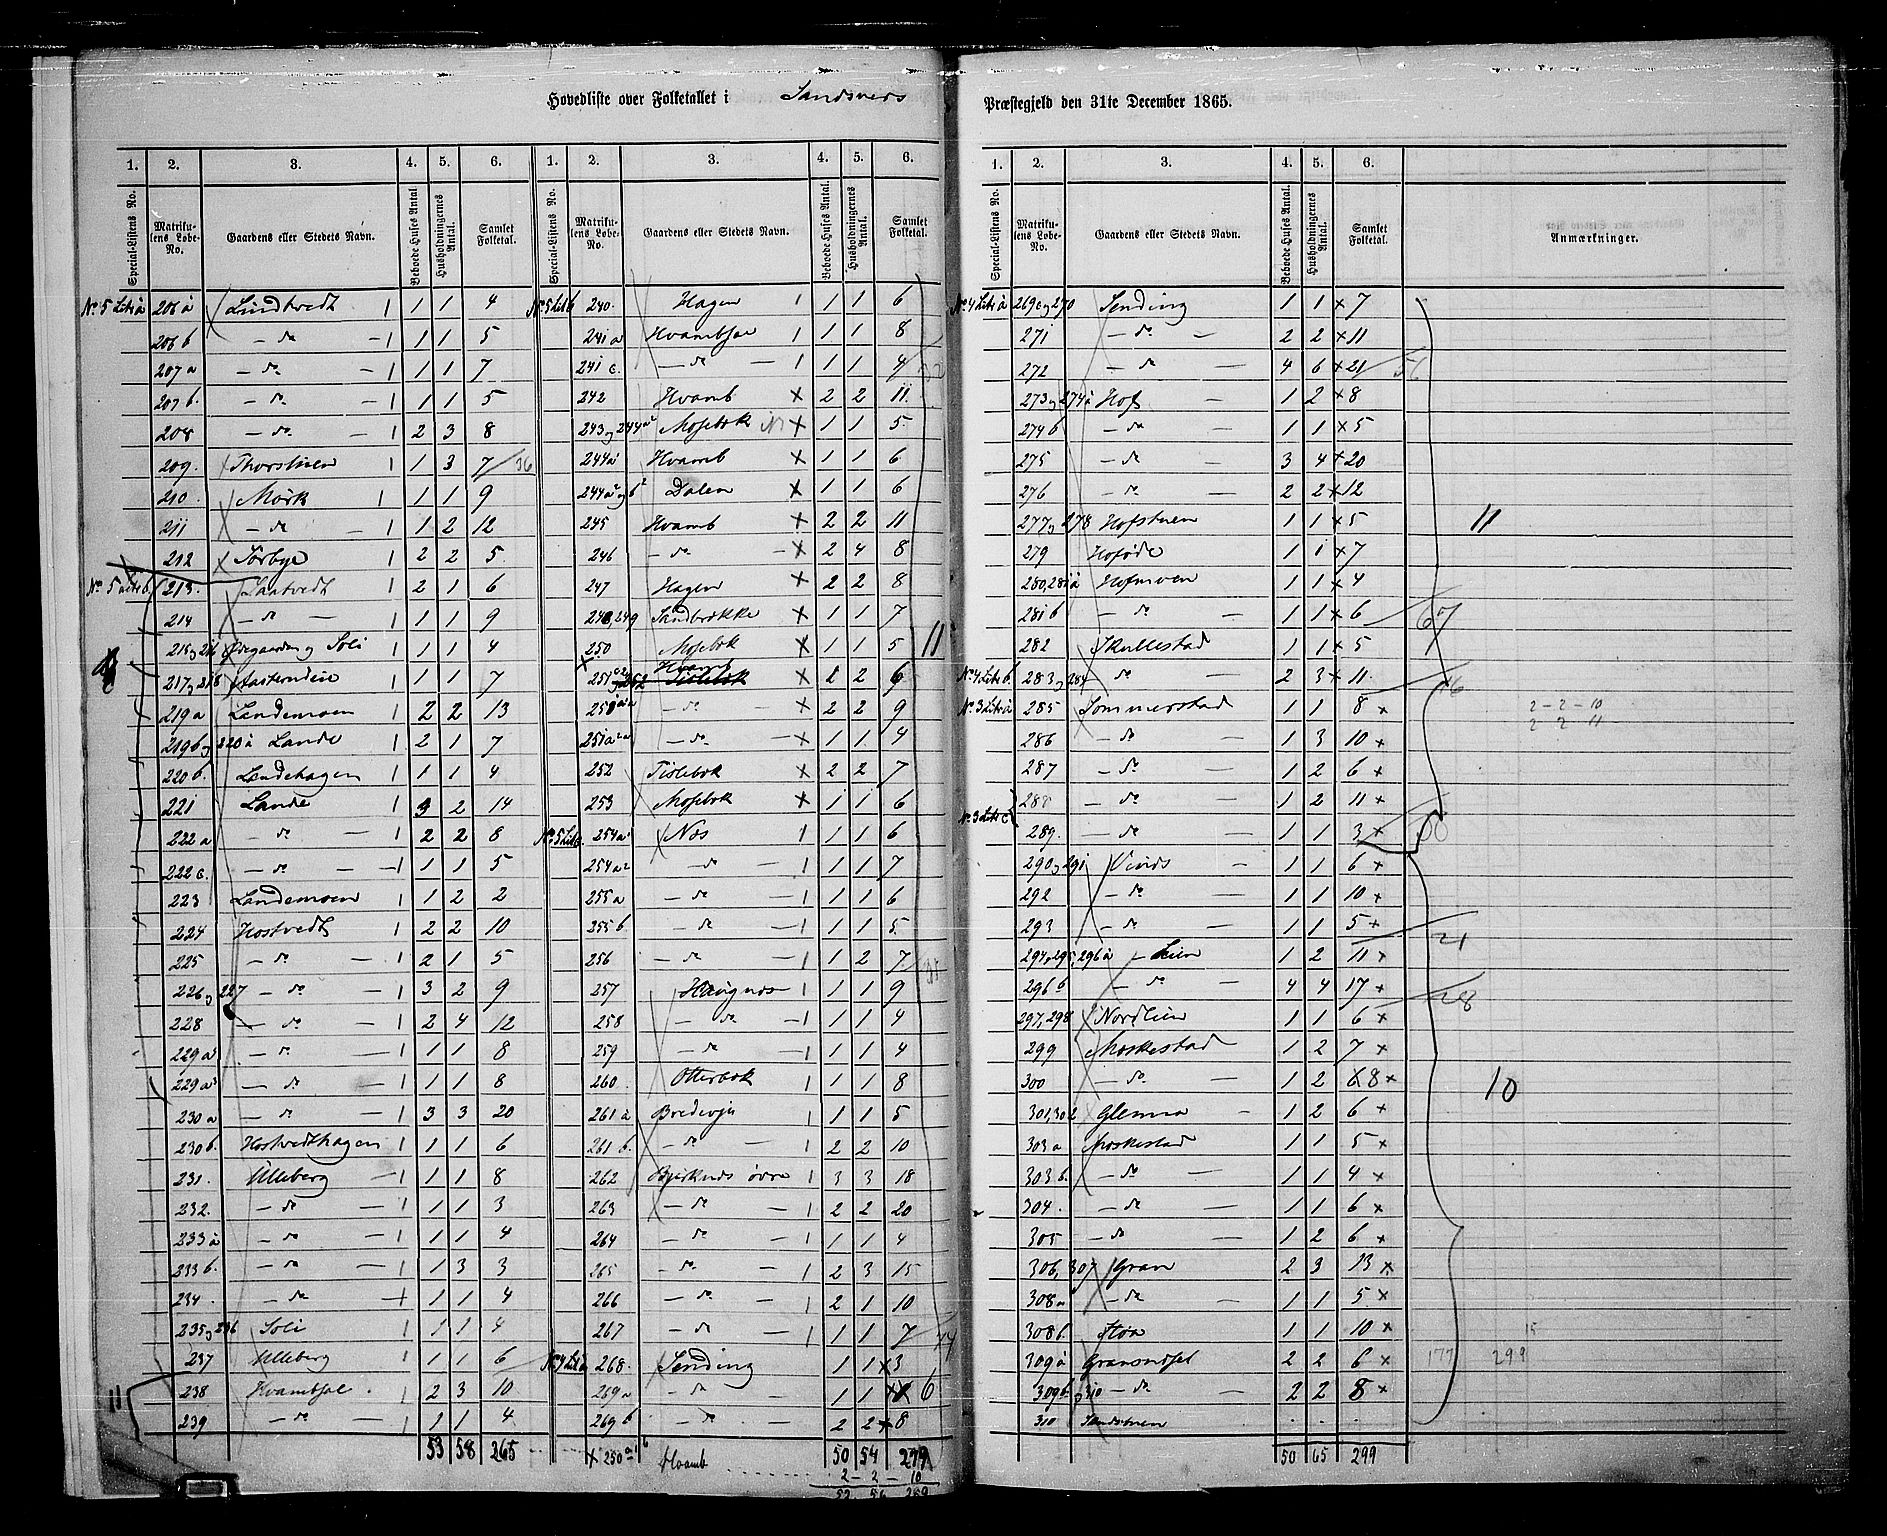 Hovedliste over Folketallet i Sandsvers Præstegjeld den 31te December 1865.
1. 2. 3. 4. 5. 6. 1. 2. 3. 4. 5. 6.
Special-Listens No. Matrikulens Løbe-No. Gaardens eller Stedets Navn. Beboede Huses Antal. Husholdningernes Antal. Samlet Folketal. Special-Listens No. Matrikulens Løbe-No. Gaardens eller Stedets Navn. Beboede Huses Antal. Husholdningernes Antal. Samlet Folketal.
No 5 Litr a 206 a Lindtvedt 1 1 4
206 b — do — 1 1 5
207 a — do — 1 1 7
207 b. — do — 1 1 5
208 — do — 2 3 8
209. Thorstuen 1 3 7 / 36
210. Mørk 1 1 9
211 — do — 1 2 12
212 Sørbye 2 2 5
No 5 Litr b. 213. Laatvedt 2 1 6
214 — do — 1 1 9
215 og 216 Ødegaarden og Soli 1 1 4
217 og 218 1 1 7
219 a Landemoen 2 2 13
219 b og 220 a Lande 2 1 7
220 b. Landehagen 1 1 4
221 Lande 3 2 14
222 a — do — 2 2 8
222 c. — do — 1 1 5
223 Landemoen 1 2 2
224 Hostvedt 2 2 10
225 — do — 2 1 5
226 og 227 — do — 3 2 9
228 — do — 2 4 12
229 a — do — 1 1 8
229 a — do — 1 1 8
230 a — do — 3 3 20
230 b. Hostvedthagen 1 1 6
231. Ulleberg 1 1 8
232. — do — 1 1 3
233 a — do — 1 1 4
233 b. — do — 1 3 3
234. — do — 1 1 4
235 og 236 Soli 1 1 4
237 Ulleberg 1 1 6
238 Hvambsal 2 3 10
239 — do — 1 1 4
53 58 265
No 5 Litr b 240. Hagen 1 1 6
241 a Hvambsal 1 1 8
241 c. — do — 1 1 4 / 32
242 Hvamb × 2 2 11
243 og 244 a Mosebok × 1 1 5
244 a Hvamb × 1 1 6
244 a og b Dalen × 1 1 6
245 Hvamb × 2 2 11
246 — do — × 2 4 8
247 Hagen × 2 2 8
248, 249 Sandbække × 1 1 7
250 Mosebok × 1 1 5 11
251 Hvamb × 2 2 6
— do — × 2 2 9
251 a — do — × 1 1 4
252 Tislebok × 2 2 7
253 Mosebok × 1 1 6
No 5 Litr c. 254 a Næs 1 1 6
254 a — do 1 1 7
255 a — do — 1 1 6
255 b — do — 1 1 5
256 — do 1 2 7
257 Haugnæs 1 1 9
258 — do — 1 1 4
259 — do 1 1 4
260. Otterbok 1 1 8
261 a 1 1 5
261 b. — do — 2 2 10
262 Bjørknæs øvre 3 3 18
263 — do — 2 2 20
264 — do — 1 1 4
265 — do — 2 3 15
266 — do — 2 1 10
267 — do — 1 1 7 / 74
No 4 Litr a 268. Sending 1 1 × 3
269 a — do — 1 1 × 6
269 b — do — 2 2 × 8
× 250 Hvamb 50 54 279
2 – 2 – 10
52 56 289
1. 2. 3. 4. 5. 6.
Special-Listens No. Matrikulens Løbe-No. Gaardens eller Stedets Navn. Beboede Huses Antal. Husholdningernes Antal. Samlet Folketal. Anmærkninger.
No 4 Litr a 269 c og 270 Sending 1 1 × 7
271 — do — 2 2 × 11
272 — do — 4 6 × 21 / 56
273 og 274 a Hof — 1 2 × 8
274 b — do — 1 1 × 5
275 — do — 3 4 × 20
276 — do — 2 2 × 12
277 og 278 Hofstuen 1 1 × 5 11
279 Hoføde 1 1 × 7
280, 281 a Hofmoen 1 1 × 4
281 b — do — 1 1 × 6 / 67
282 Skullestad 1 1 × 5
No 4 Litr b. 283 og 284 do — 2 3 × 11 16
No 3 Litr a 285 Sommerstad 1 1 8 × 2 – 2 – 10
2 – 2 – 11
286 — do — 1 3 10 ×
287 — do — 1 2 6 ×
288 — do — 1 2 11 ×
No 3 Litr c 289. — do — 1 1 3 ×
290 og 291 — 1 1 6 ×
292 — do — 1 1 10 ×
293 — do — 1 1 5 × 21
294, 295, 296 a Lien — 1 2 11 ×
296 b — do — 4 4 17 × 28
297, 298 Nordlien 1 1 6 ×
299 Moskestad 1 2 7 ×
300 — do — 1 2 8 × 10
301, 302 Glenna — 1 2 6 ×
303 a Moskestad 1 1 5 ×
303 b. — do — 1 1 4 ×
304. — do — 1 1 6 ×
305 — do — 1 2 6 ×
306, 307 Gran 2 3 13 ×
308 a — do — 1 1 5 ×
308 b. 1 1 10 × 15
309 a 2 2 6 × 177 299
309 b. og 310 — do — 2 2 8 ×
310 Sandstuen . . .
50 65 299